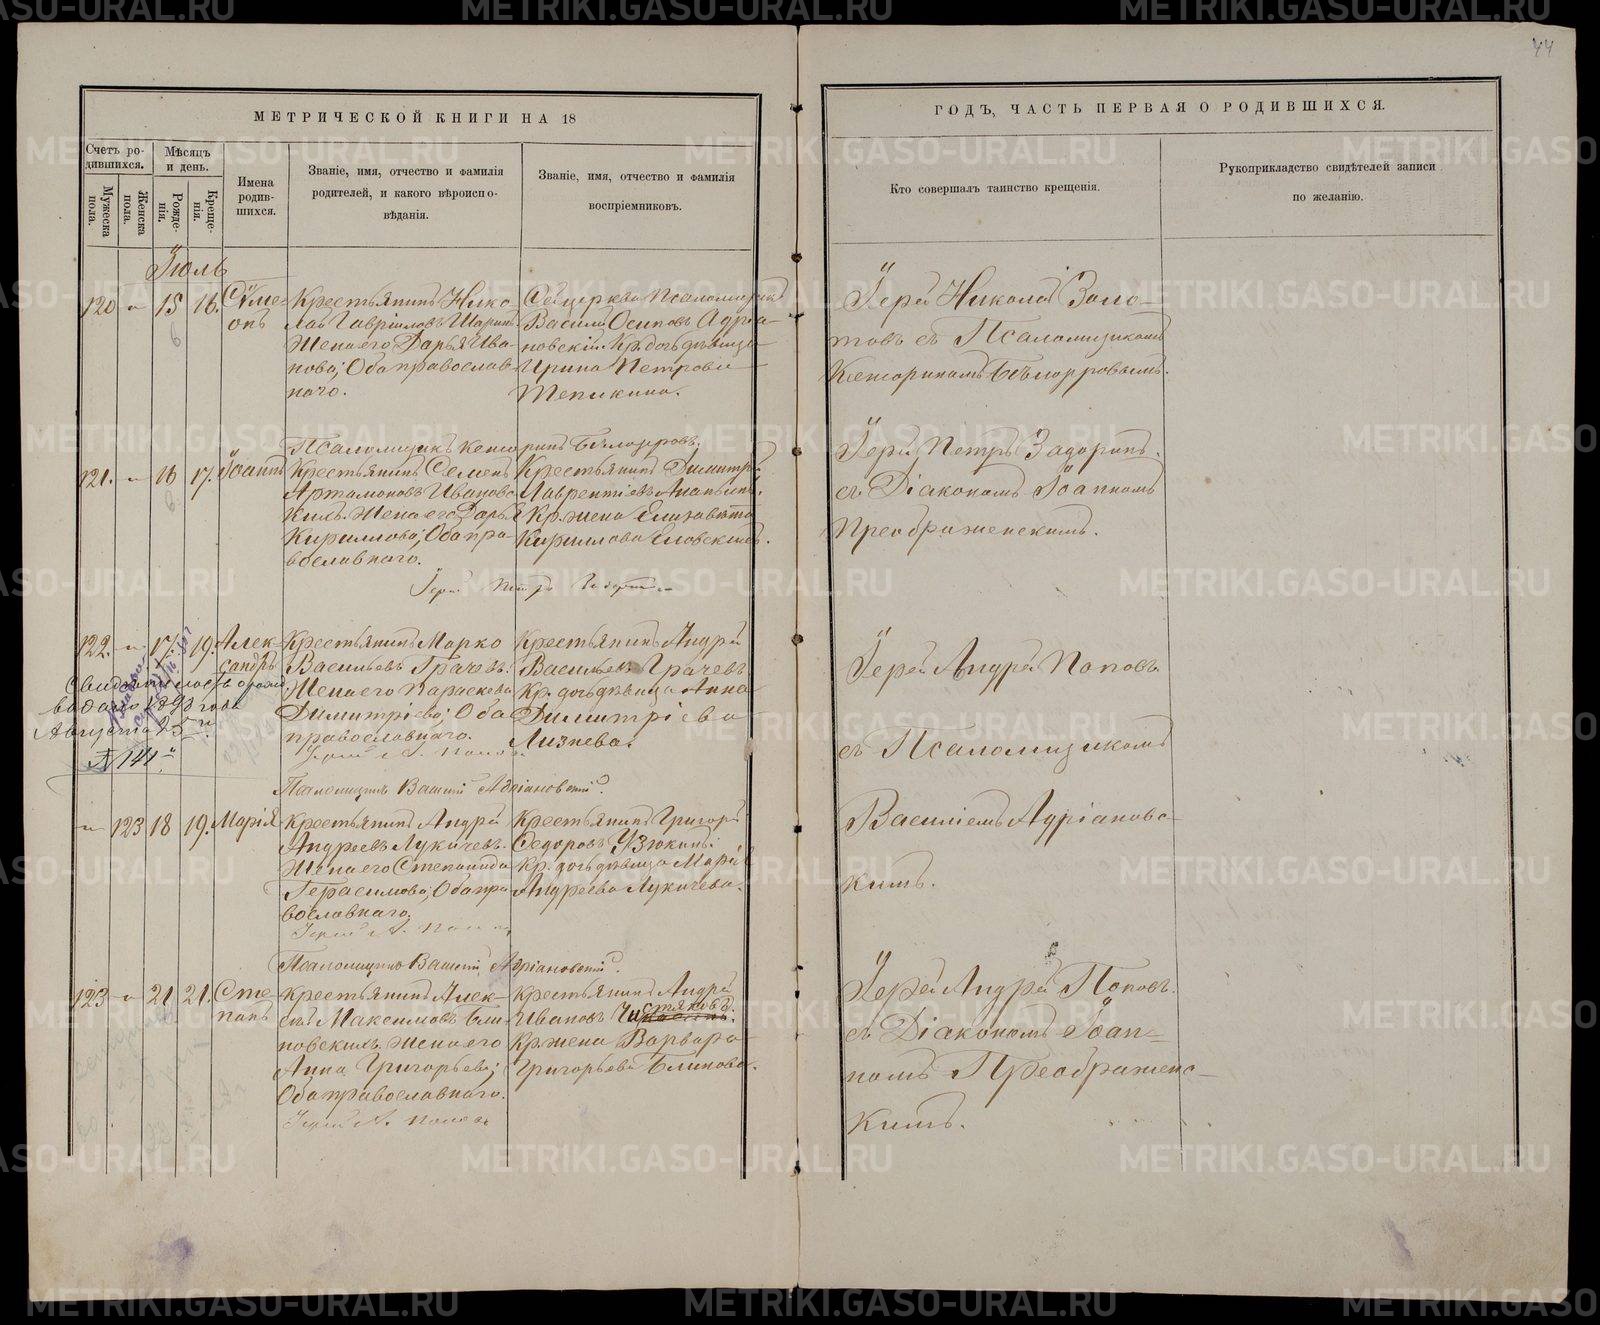 44
МЕТРИЧЕСКОЙ КНИГИ НА 18
ГОДЪ, ЧАСТЬ ПЕРВАЯ О РОДИВШИХСЯ.
Счетъ ро-
дившихся.
Мужеска
пола.
Женска
пола.
Мѣсяцъ
и день.
Рожде-
нія.
Креще-
нія.
Имена
родив-
шихся.
Званіе, имя, отчество и фамилія
родителей, и какого вѣроиспо-
вѣданія.
Званіе, имя, отчество и фамилія
воспріемниковъ.
Кто совершалъ таинство крещенія.
Рукоприкладство свидѣтелей записи
по желанію.
Іюль
120 " 15 16. Симе-
онъ
Крестьянинъ Нико-
лай Гавріиловъ Шаринъ
Жена его Дарья Ива-
нова; Оба православ-
наго.
Сей церкви Псаломщикъ
Василій Осиповъ Адріа-
новскій. Кр. дочь дѣвица
Ирина Петрова
Тепикина.
Іерей Николай Золо-
товъ съ Псаломщикомъ
Кенсориномъ Бѣлозеровымъ.
Псаломщикъ Кенсоринъ Бѣлозеровъ.
121. " 16 17. Іоаннъ
Крестьянинъ Семенъ
Артамоновъ Иванов-
кихъ. Жена его Дарья
Кириллова; Оба пра-
вославнаго.
Крестьянинъ Димитрій
Лаврентіевъ Ананьинъ.
Кр. жена Елизавета
Кириллова Словскихъ.
Іерей Петръ Задоринъ.
съ Діакономъ Іоанномъ
Преображенскимъ.
Іерей Петръ Задоринъ
122. " 17. 19. Алек-
сандръ
Крестьянинъ Марко
Васильевъ Грачевъ.
Жена его Параскева
Димитріева; Оба
православнаго.
Крестьянинъ Андрей
Васильевъ Грачевъ
Кр. дочь дѣвица Анна
Димитріева
Лизнева.
Іерей Андрей Поповъ
съ Псаломщикомъ
Василіемъ Адріановс-
кимъ.
Свидѣтельство о рожд.
выдано 1893 года
Августа 25
№ 141
Іерей А. Поповъ
Псаломщикъ Василій Адріановскій.
" 123 18 19. Марія
Крестьянинъ Андрей
Андреевъ Лукичевъ.
Жена его Степанида
Герасимова; Оба пра
вославнаго.
Крестьянинъ Григорій
Седоровъ Узюкинъ.
Кр. дочь дѣвица Марія
Андреева Лукичева.
Іерей А. Поповъ
Псаломщикъ Василій Адріановскій.
123 " 21 21. Сте-
панъ
Крестьянинъ Алек-
сѣй Максимовъ Бли-
новскихъ. Жена его
Анна Григорьева;
Оба православнаго.
Крестьянинъ Андрей
Ивановъ Чистяковъ.
Кр. жена Варвара
Григорьева Блинова.
Іерей Андрей Поповъ.
съ Діакономъ Іоан-
номъ Преображенс-
кимъ.
Іерей А. Поповъ
METRIKI.GASO-URAL.RU